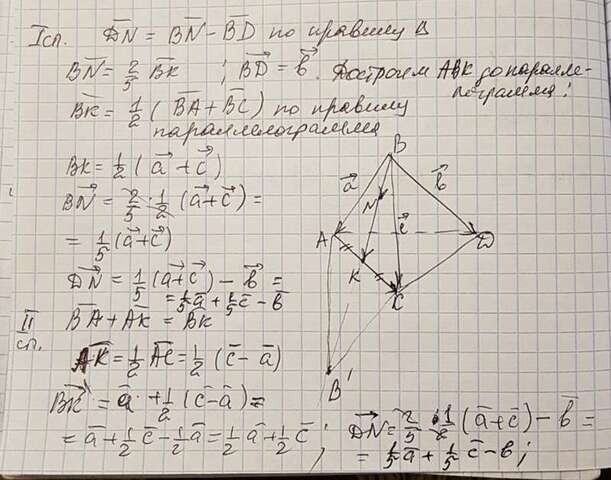 I сп. DN = BN - BD по правилу Δ
BN = 2/5 BK ; BD = b. Достроим ABK до паралле-
лограмма:
BK = 1/2 (BA + BC) по правилу
параллелограмма
BK = 1/2 (a + c)
BN = 2/5 · 1/2 (a + c) =
= 1/5 (a + c)
DN = 1/5 (a + c) - b =
= 1/5 a + 1/5 c - b
II сп. BA + AK = BK
AK = 1/2 AC = 1/2 (c - a)
BK = a + 1/2 (c - a) =
= a + 1/2 c - 1/2 a = 1/2 a + 1/2 c ;
DN = 2/5 · 1/2 (a + c) - b =
= 1/5 a + 1/5 c - b ;
B
a
b
N
c
A
D
K
C
B'